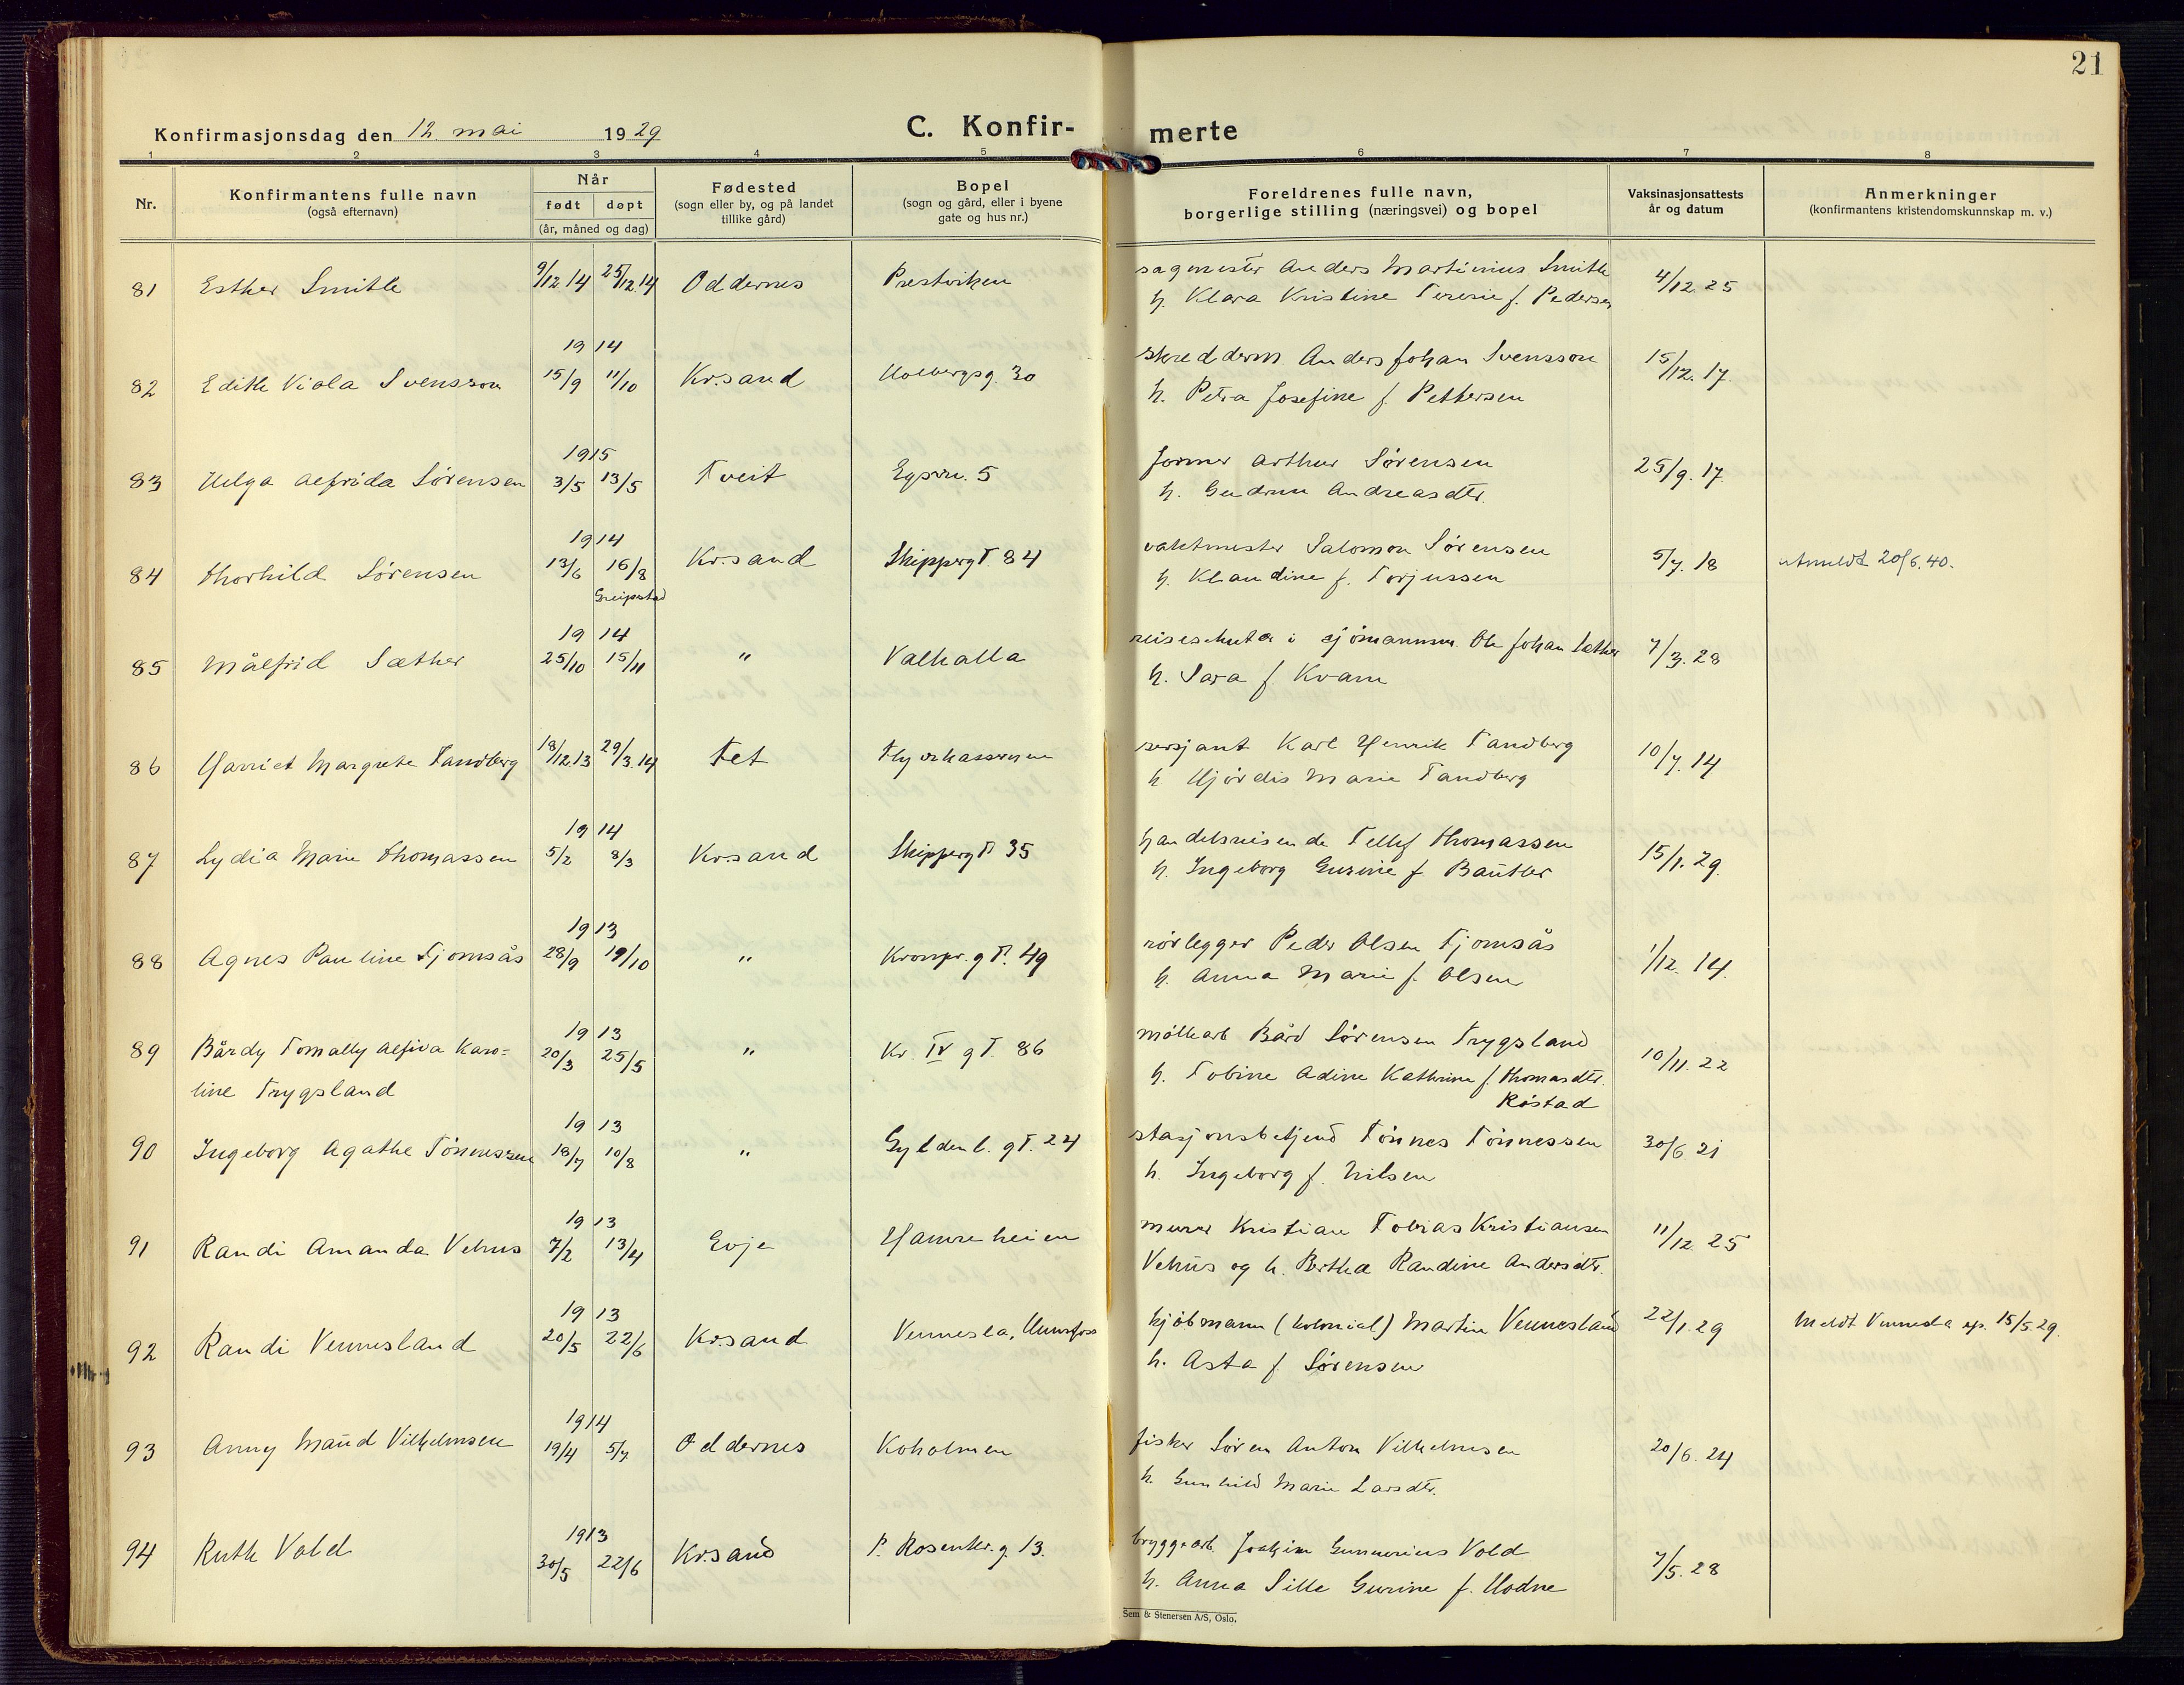 21
Konfirmasjonsdag den 12. mai 1929
C. Konfir- merte
1 2 3 4 5 6 7 8
Nr.
Konfirmantens fulle navn
(også efternavn)
Når
født døpt
(år, måned og dag)
Fødested
(sogn eller by, og på landet
tillike gård)
Bopel
(sogn og gård, eller i byene
gate og hus nr.)
Foreldrenes fulle navn,
borgerlige stilling (næringsvei) og bopel
Vaksinasjonsattests
år og datum
Anmerkninger
(konfirmantens kristendomskunnskap m. v.)
81 Esther Smith 9/12 14 25/12.14 Oddernes Prestviken sagmester Anders Martinius Smith 4/12.25
h. Klara Kristine Tererie f. Pedersen
19 14
82 Edith Viola Svensson 15/9 11/10 Kr.sand Holbergsg. 30 skredderm. Anders Johan Svensson 15/12.17.
h. Petra Josefine f. Pettersen
1915
83 Helga Alfrida Sørensen 3/5 13/5 Tveit Egsvn. 5 former Arthur Sørensen 25/9.17.
h. Gudrun Andreasdtr.
1914
84 Thorhild Sørensen 13/6 16/8 Kr.sand Skippergt. 84 vaktmester Salomon Sørensen 5/7.18 utmeldt 20/6.40.
Greipstad
h. Klaudine f. Torjussen
19 14
85 Målfrid Sæther 25/10 15/11 " Valhalla i sjømannsm. Ole Johan Sæther 7/3.28
h. Sara f Kvam
86 Harriet Margrete Tandberg 18/12.13 29/3.14 Fet sersjant Karl Henrik Tandberg 10/7.14
h Hjørdis Marie Tandberg
19 14
87 Lydia Marie Thomassen 5/2 8/3 Kr.sand Skippergt 35 handelsreisende Tellef Thomassen 15/1.29.
h. Ingeborg Gurine f
1913
88 Agnes Pauline Tjomsås 28/9 19/10 " Kronpr.gt. 49 rørlegger Peder Olsen Tjomsås 1/12.14.
h. Anna Marie f. Olsen
19 13
89 Bårdy Tomally Alfida Karo= 20/3 25/5 " Kr. IV gt. 86 møllearb Bård Sørensen Trygsland 10/11.22
line Trygsland
h. Tobine Adine Kathrine f. Thomasdtr.
Røstad
19 13
90 Ingeborg Agathe Tønnessen 18/7 10/8 " Gyldenl.gt. 24 stasjonsbetjend Tønnes Tønnessen 30/6 21
h. Ingeborg f. Nilsen
19 13
91 Randi Amanda Vehus 7/2 13/4 Evje Hamreheien murer Kristian Tobias Kristiansen 11/12 25
Vehus og h. Bertha Randine Andersdtr.
19 13
92 Randi Vennesland 20/5 22/6 Kr.sand Vennesla, Hunsfoss kjøbmann (kolonial) Martin Vennesland 22/1.29 Meldt Vennesla sp. 15/5.29.
h. Asta f. Sørensen
1914
93 Anny Maud Vilhelmsen 19/4 5/7. Oddernes Koholmen fisker Søren Anton Vilhelmsen 20/6.24
h. Gunhild Marie Larsdtr.
1913
94 Ruth Vold 30/5 22/6 Kr.sand P. Rosenkr.g. 13. bryggearb. Joakim Gunnerius Vold 7/5.28
h. Anna Sille Gurine f. Hodne
Sem & Stenersen A/S, Oslo.